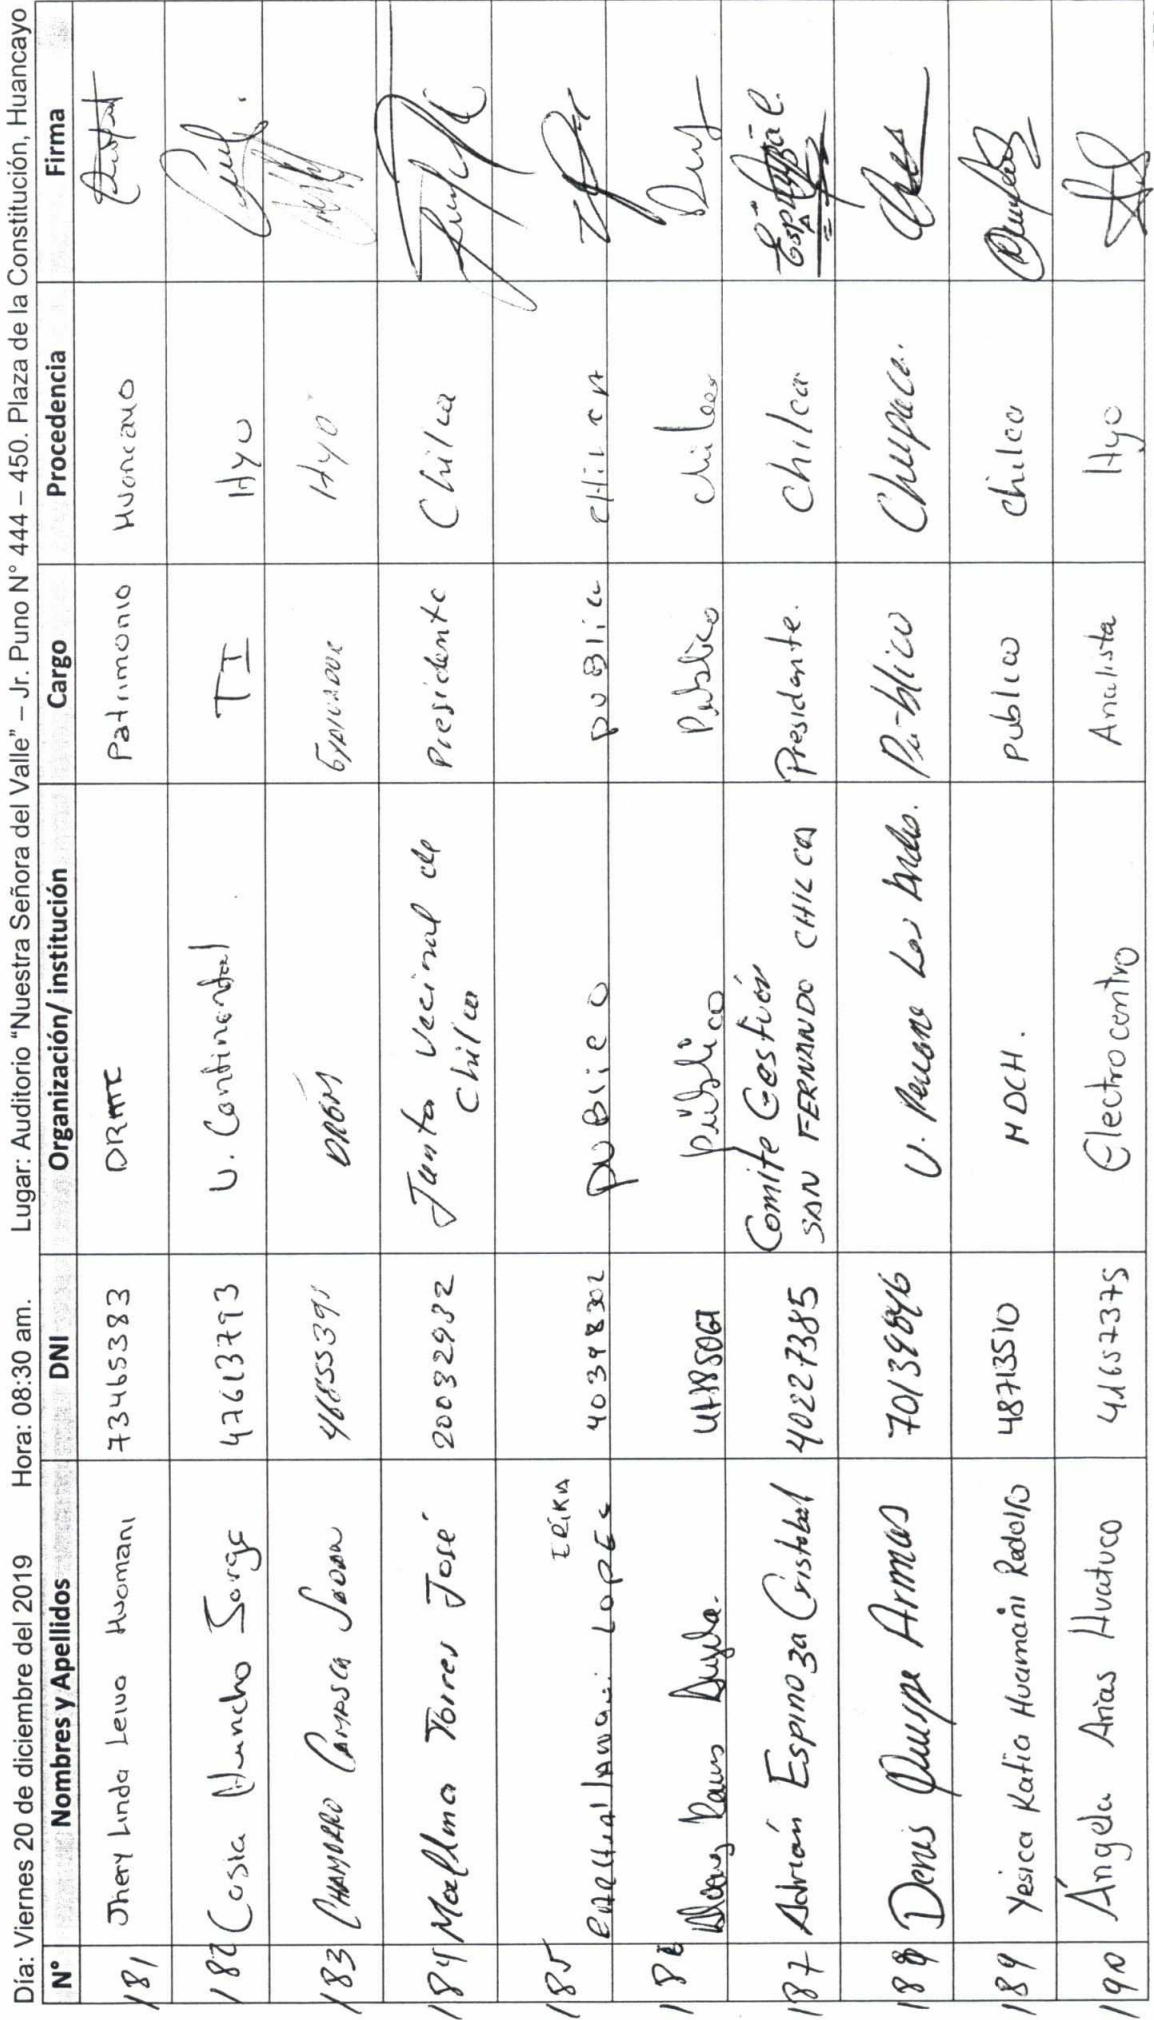 Día: Viernes 20 de diciembre del 2019 Hora: 08:30 am. Lugar: Auditorio "Nuestra Señora del Valle" – Jr. Puno N° 444 – 450. Plaza de la Constitución, Huancayo
N° Nombres y Apellidos DNI Organización/ institución Cargo Procedencia Firma
181 Jhery Linda Leiva Huamani 73465383 DRMTC Patrimonio Huancayo
182 Cosia Huncho Jorge 47613793 U. Continental TI Hyo
183 Chamorro 46855391 DREM Hyo
184 Mallma Torres José 20032932 Junta Vecinal de Chilca Presidente Chilca
185 Lopez Erika 40398302 publico publico chilca
186 Publico Publico chilca
187 Adrián Espinoza Cristobal 40227385 Comite Gestión SAN FERNANDO CHILCA Presidente. Chilca
188 Denis Quispe Armas U. Peruana Los Andes. Público Chupaca.
189 Yesica Katia Huamaní Rodolfo 48713510 MDCH. publico chilca
190 Ángela Arias Huatuco 41657375 Electrocentro Analista Hyo